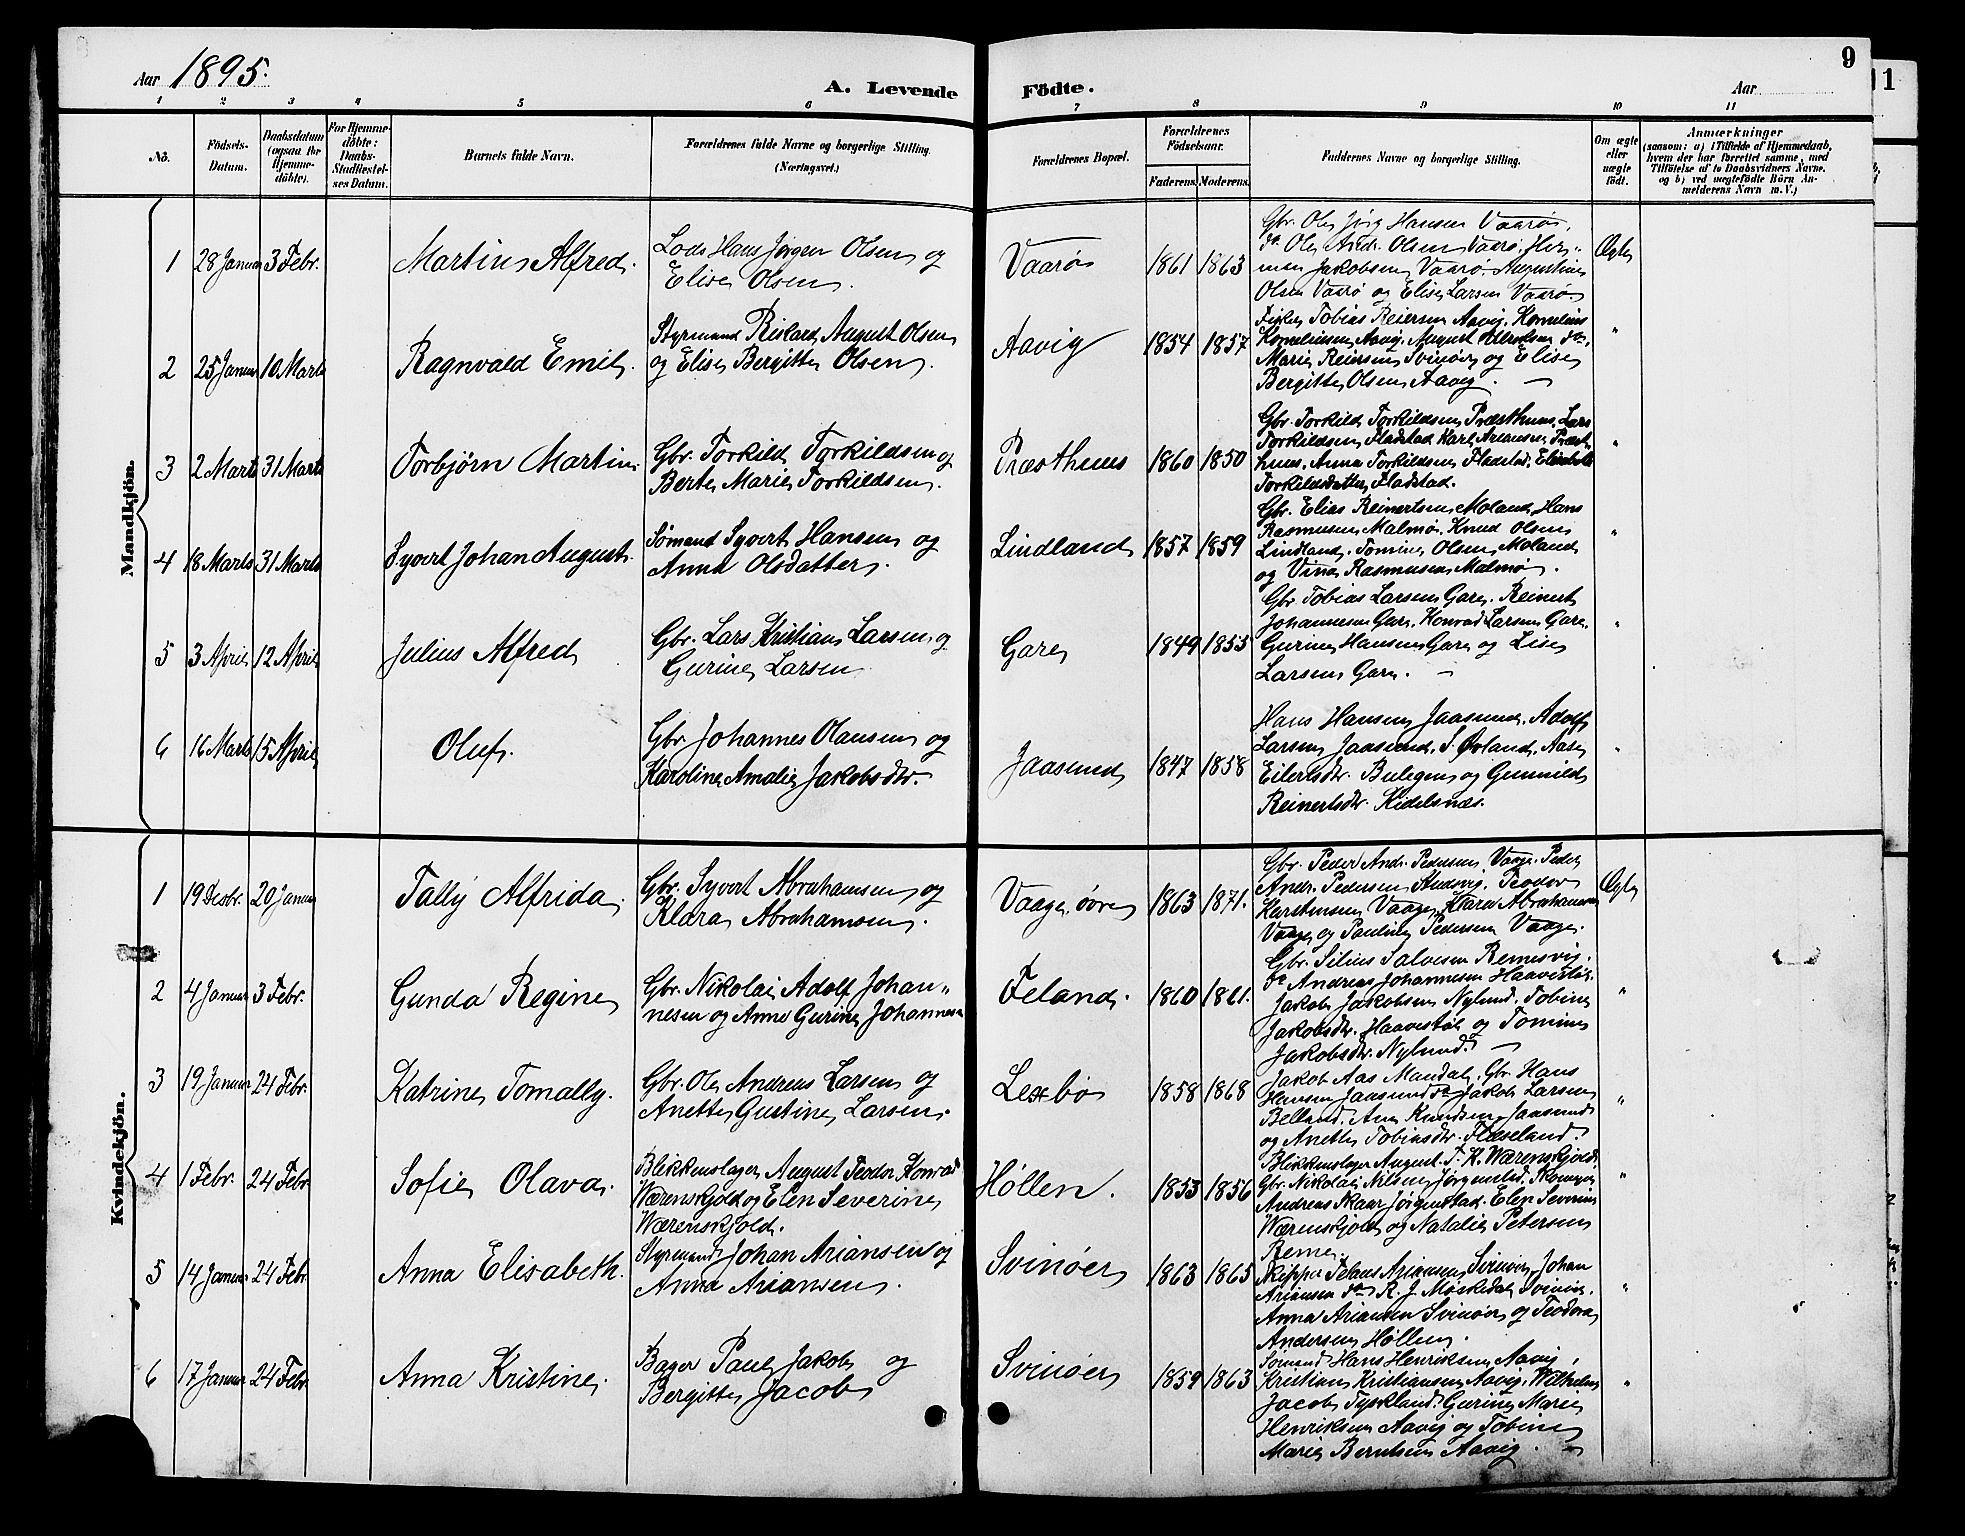 Aar 1895.
A. Levende Födte.
9
Aar
11
1 2 3 4 5 6 7 8 9 10 11
No.
Födsels-
Datum.
Daabsdatum
(ogsaa for
Hjemme-
döbte).
For Hjemme-
döbte:
Daabs-
Stadfæstel-
ses Datum.
Barnets fulde Navn.
Forældrenes fulde Navne og borgerlige Stilling.
(Næringsvei.)
Forældrenes Bopæl.
Forældrenes
Födselsaar.
Faderens. Moderens.
Faddernes Navne og borgerlige Stilling.
Om ægte
eller
uægte
født.
Anmærkninger
(saasom: a) i Tilfælde af Hjemmedaab,
hvem der har forrettet samme, med
Tilföielse af to Daabsvidners Navne,
og b) ved uægtefödte Börn An-
melderens Navn m. V.)
Mandkjön.
1 28 Januar 3 Febr. Martin Alfred.
Lods Hans Jørgen Olsen og
Elise Olsen.
Vaarø 1861 1863
Gbr. Ole Jørg Hansen Vaarø,
do Ole Andr. Olsen Vaarø, Her-
man Jakobsen, Vaarø, Augustine
Olsen Vaarø og Elise Larsen Vaarø.
Ægte
2 25 Januar 10 Marts Ragnvald Emil.
Styrmand Rikard August Olsen
og Elise Bergitte Olsen.
Aavig 1854 1857
Fisker Tobias Reiersen Aavig, Kornelius
Korneliussen Aavig, August do,
Marie Reiersen Svinøer og Elise
Bergitte Olsen Aavig. —
"
3 2 Marts 31 Marts Torbjørn Martin.
Gbr. Torkild Torkildsen og
Berte Marie Torkildsen.
Præsthuus 1860 1850
Gbr. Torkild Torkildsen Præsthuus, Lars
Torkildsen Fladstad, Karl Præst-
huus, Anna Torkildsen Fladstad, Elisabeth
Torkildsdatter Fladstad.
"
4 18 Marts 31 Marts Syvert Johan August.
Sømand Syvert Hansen og
Anna Olsdatter.
Lindland 1857 1859
Gbr. Elias Reinertsen Moland, Hans
Rasmussen Malmø, Knud Olsen
Lindland, Tomine Olsen Moland
og Vina Rasmussen Malmø.
"
5 3 April 12 April Julius Alfred
Gbr. Lars Kristian Larsen og
Gurine Larsen
Gare 1849 1855
Gbr. Tobias Larsen Gare, Reinert
Johannesen Gare, Konrad Larsen Gare,
Gurine Hansen Gare og Lise
Larsen Gare. —
"
6 16 Marts 15 April Oluf.
Gbr. Johannes Olausen og
Karoline Amalie Jakobsdtr.
Jaasund 1847 1858
Hans Hansen Jaasund, Adolf
Larsen Jaasund, S. Øvland, Aase
Eilertsdtr. Bulegen og Gunnild
Reinertsdtr. Kidelsnæs.
"
Kvindekjön.
1 19 Desbr. 20 Januar Tally Alfrida.
Gbr. Syvert Abrahamsen og
Klara Abrahamsen.
Vaage, øvre 1863 1871.
Gbr. Peder Andr. Pedersen Vaage, Peder
Andr. Pedersen Studsvig, Teodor
Karstensen Vaage, Klara Abrahamsen
Vaage og Pauline Pedersen Vaage.
Ægte
2 4 Januar 3 Febr. Gunda Regine
Gbr. Nikolai Adolf Johan-
nesen og Anne Gurine Johannesen
Feland. 1860 1861.
Gbr. Silius Salvesen Remesvig,
do Andreas Johannesen Haavestøl,
Jakob Jakobsen Nylund, Tobine
Jakobsdtr. Haavestøl og Tomine
Jakobsdtr. Nylund. —
"
3 19 Januar 24 Febr. Katrine Tomally.
Gbr. Ole Andreas Larsen og
Anette Gustine Larsen.
Lexbø 1858 1868
Jakob Aas Mandal, Gbr. Hans
Hansen Jaasund, do Jakob Larsen
Belland, Ane Knudsen Jaasund
og Anette Tobiasdtr. Flæseland.
"
4 1 Febr. 24 Febr. Sofie Olava.
Blikkenslager August Teodor Konrad
Wærenskjold og Elen Severine
Wærenskjold.
Høllen. 1853 1856
Blikkenslager August T. K. Wærenskjold,
Gbr. Nikolai Nilsen Jørgenstad,
Andreas Skaar Jørgenstad, Elen Severine
Wærenskjold og Natalie Petersen
Reme.
"
5 14 Januar 24 Febr Anna Elisabeth.
Styrmand Johan Ariansen og
Anna Ariansen.
Svinøer 1863 1865
Skipper Ariansen Svinøer, Johan
Ariansen do R. J. Møskedal Svinøer,
Anna Ariansen Svinøer og Teodora
Andersen Høllen.
"
6 17 Januar 24 Febr Anna Kristine.
Bager Paul Jakob og
Bergitte Jacob
Svinøer 1859 1863
Sømand Hans Henriksen Aavig,
Kristian Kristiansen Aavig, Wilhelm
Jacob Tyskland, Gurine Marie
Henriksen Aavig og Tobine
Marie Berntsen Aavig. —
"